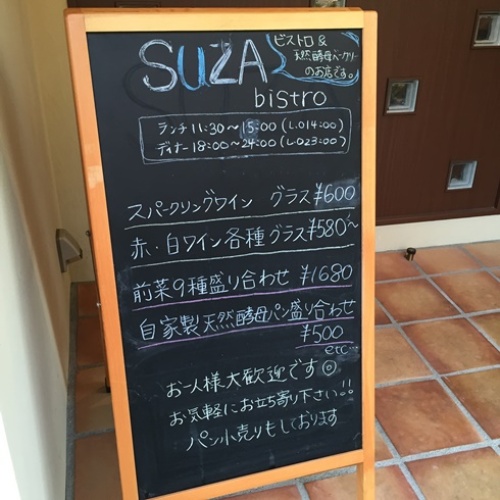 SUZA
bistro
ビストロ &
天然酵母ベーカリー
のお店です。
ランチ 11:30〜15:00 (L.O14:00)
ディナー 18:00〜24:00 (L.O23:00)
スパークリングワイン グラス ¥600
赤・白ワイン各種 グラス ¥580〜
前菜9種盛り合わせ ¥1680
自家製天然酵母パン盛り合わせ
¥500
etc...
お一人様大歓迎です◎
お気軽にお立ち寄り下さい!!
パン小売りもしております